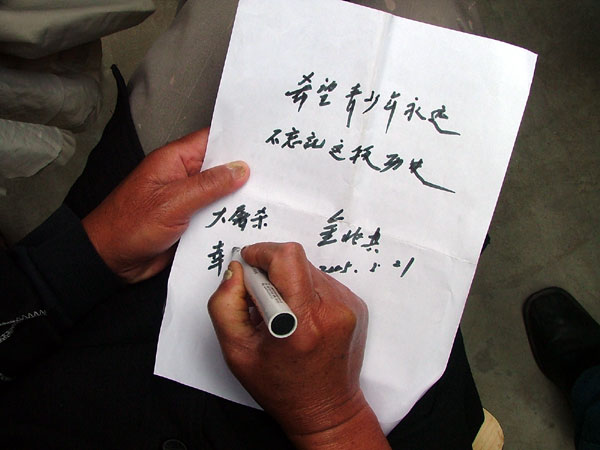 希望青少年永远
不忘记这段历史
大屠杀 金
幸 2005. 21